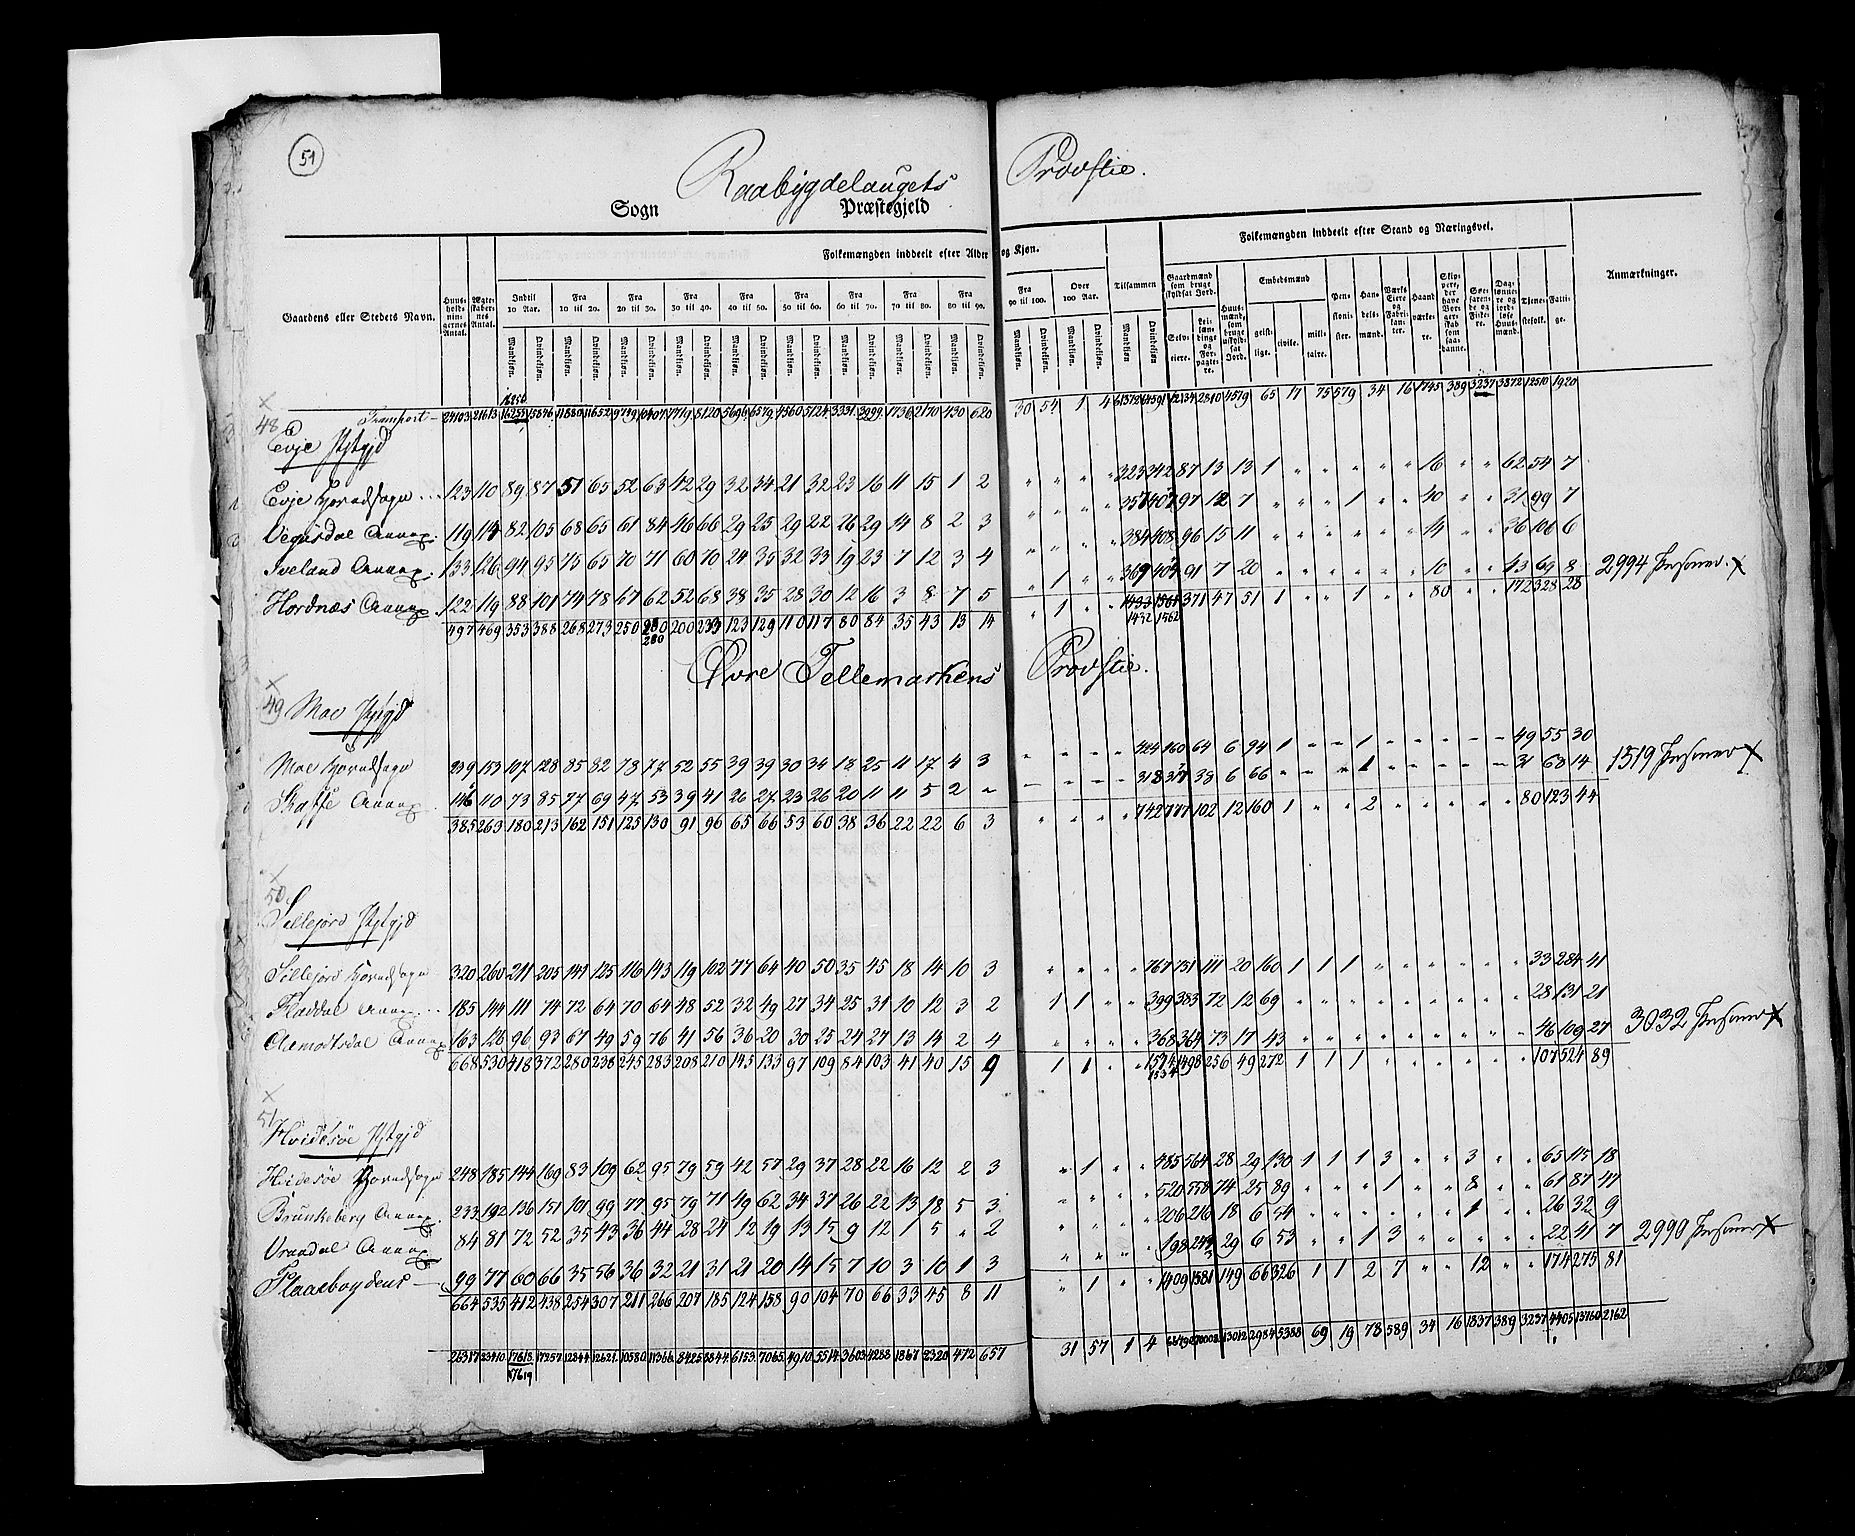 51
Raabygdelaugets Provstie.
Sogn Præstegjeld
Gaardens eller Stedets Navn.
Folkemængden inddeelt efter Alder og Kjøn.
Tilsammen
Folkemængden inddeelt efter Stand og Næringsvei.
Anmærkninger.
Indtil 10 Aar.
Fra 10 til 20.
Fra 20 til 30.
Fra 30 til 40.
Fra 40 til 50.
Fra 50 til 60.
Fra 60 til 70.
Fra 70 til 80.
Fra 80 til 90.
Fra 90 til 100.
Over 100 Aar.
Embedsmænd
Mandkjøn. Qvindekjøn.
geistlige. civile. militaire.
Transport
30 54 1 4
48
Evje Pstgjd
Evje Hovedsogn 123 110 89 87 51 65 52 63 42 29 32 34 21 32 23 16 11 15 1 2 " " " " 323 342 87 13 13 1 " " " " " 16 " " 62 54 7
Vegusdal Annex. 119 114 82 105 68 65 61 84 46 66 29 25 29 22 26 29 14 8 2 3 " " " " 357 407 97 12 7 " " " 1 " " 40 " " 31 99 7
Iveland Annex. 133 126 94 95 75 65 70 71 60 70 24 35 32 33 19 23 7 12 3 4 " " " " 384 408 96 15 11 " " " " " " 14 " " 36 106 6
Hordnæs Annex. 122 119 88 101 74 78 67 62 52 68 38 35 28 30 12 16 3 8 7 5 " 1 " " 369 405 91 7 20 " " " " " " 10 " " 43 69 8
2994 Personer. x
497 469 353 388 268 273 250 280 200 233 123 129 110 117 80 84 35 43 13 14 " 1 " " 1433 1561 371 47 51 1 " " 1 " " 80 " " 172 328 28
280 1432 1562
Øvre Tellemarkens Provstie.
49
Moe Pstgjd
Moe Hovedsogn 239 153 107 128 85 82 78 77 52 55 39 39 30 34 18 25 11 17 4 3 " " " " 424 460 64 6 94 1 " " 1 " " " " " 49 55 30
Skaffe Annex 146 110 73 85 77 69 47 53 39 41 26 27 23 26 20 11 11 5 2 " " " " " 318 317 38 6 66 " " " 1 " " " " " 31 68 14
1519 Personer x
385 263 180 213 162 151 125 130 91 96 65 66 53 60 38 36 22 22 6 3 " " " " 742 777 102 12 160 1 " " 2 " " " " " 80 123 44
50
Sillejord Pstgjd
Sillejord Hovedsogn 320 260 211 205 141 125 116 143 119 102 77 64 40 50 35 45 18 14 10 3 " " " " 767 751 111 20 160 1 1 1 " " " " " " 33 284 41
Fladdal Annex 185 144 111 74 72 64 70 64 48 52 32 49 27 34 25 31 10 12 3 2 1 1 " " 399 383 72 12 69 " " " " " " " " " 28 131 21
Aamodtsdal Annex 163 126 96 93 67 49 59 76 41 56 36 20 30 25 24 27 13 14 2 4 " " " " 368 364 73 17 43 " " " " " " " " " 46 109 27
3032 Personer x
668 530 418 372 280 238 245 283 208 210 145 133 97 109 84 103 41 40 15 9 1 1 " " 1534 1498 256 49 272 1 1 1 " " " " " " 107 524 89
1534
51
Hvidesøe Pstgjd
Hvidesøe Hovedsogn 248 185 144 169 83 109 62 95 79 59 42 57 29 37 28 22 16 12 2 3 " 1 " " 485 564 28 29 130 1 1 1 3 " " 3 " " 65 115 18
Brunkeberg Annex. 233 192 136 151 101 99 77 95 79 71 49 62 34 37 26 22 13 18 5 3 " " " " 520 558 74 25 89 " " " 1 " " 8 " " 61 87 47
Vraadal Annex 84 81 72 52 35 43 36 44 28 24 12 19 13 15 9 12 1 5 " 2 " " " " 206 216 18 6 54 " " " " " " 1 " " 26 32 9
Flaabogdens 99 77 60 66 35 56 36 32 21 31 21 20 14 15 7 10 3 10 1 3 " " " " 198 243 29 6 53 " " 1 3 " " " " " 22 41 7
2990 Personer x
664 535 412 438 254 307 211 266 207 185 124 158 90 104 70 66 33 45 8 11 " 1 " " 1409 1581 149 66 326 1 1 2 7 " " 12 " " 174 275 81
26317 23410 17618 17257 12844 12621 10580 11366 8425 8844 6153 7065 4910 5514 3603 4288 1867 2320 472 657 31 57 1 4 13012 2984 5388 69 19 78 589 34 16 1837 389 3237 4405 13760 2162
17619